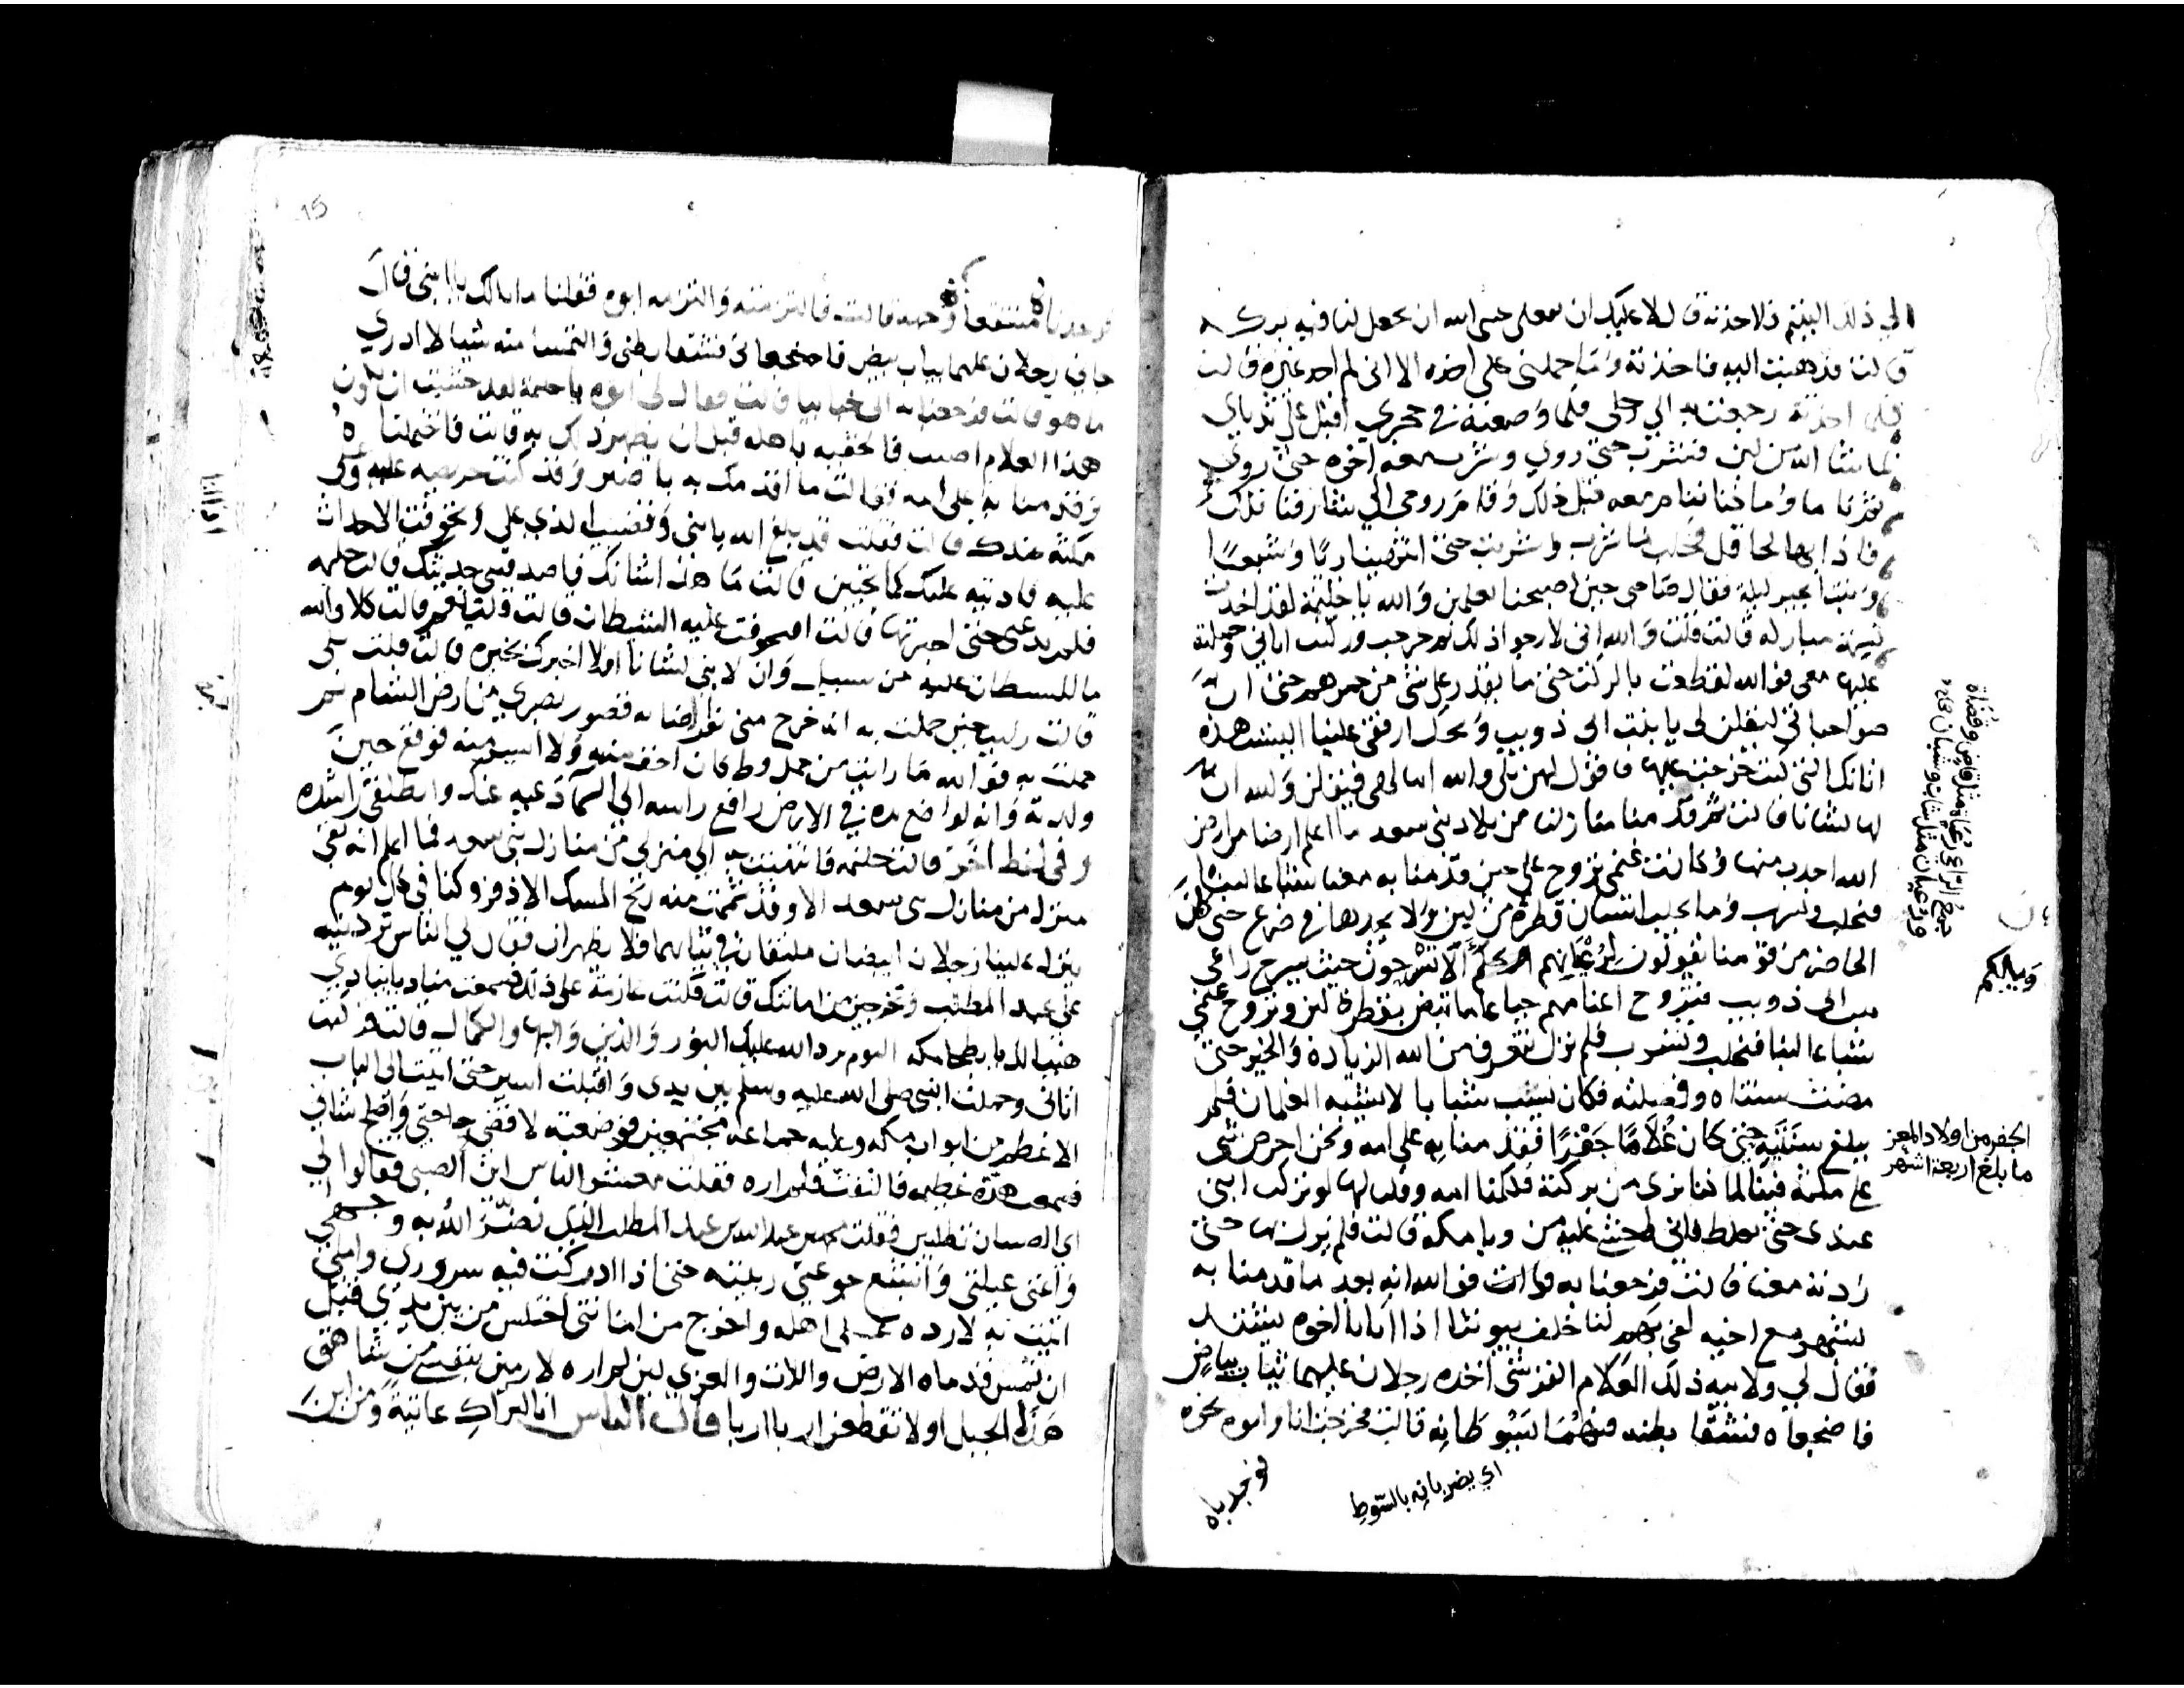 الي ذلك اليتيم فلاخذنه قال لا عليك ان تفعلي عسى الله ان يجعل لنا فيه بركه
قالت فذهبت اليه فاخذته وما حملني على اخذه الا اني لم اجد غيره قالت
فلما اخذته رجعت به الي رحلي فلما وضعته في حجري اقبل علي ثدياي
بما شا الله من لبن فشرب حتى روي وشرب معه اخوه حتى روي
ثم ناما وما كنا ننام معه قبل ذلك وقام زوجي الي شارفنا تلك
فاذا بها لحافل فحلب ما شرب وشربت حتى انتهينا ريا وشبعا
وبتنا بخير ليلة فقال صاحبي حين اصبحنا تعلمين والله يا حليمة لقد اخذت
نسمة مباركه قالت قلت والله اني لارجوا ذلك ثم خرجت وركبت اتاني وحملته
عليها معي فوالله لقطعت بالركب حتى ما يقدر علي شي من حمرهم حتى ان
صواحباتي ليقلن لي يا بنت ابي ذويب ويحك اربعي علينا اليست هذه
اتانك التي كنت خرجت عليها فاقول لهن بلى والله انها لهي فيقلن والله ان
لها لشانا قالت ثم قدمنا منازلنا من بلاد بني سعد ما اعلم ارضا من ارض
الله اجدب منها وكانت غنمي تروح علي حين قدمنا به معنا شباعا لبنا
فنحلب ونشرب وما يحلب انسان قطرة من لبن ولا يجدها في ضرع حتى كان
الحاضر من قومنا يقولون لرعيانهم الا تسرحون حيث يسرح راعي
بنت ابي ذويب فتروح اغنامهم جياعا ما تبض بقطرة لبن وتروح غنمي
شباعا لبنا فنحلب ونشرب فلم نزل نتعرف من الله الزيادة والخير حتى
مضت سنتاه وفصلته فكان يشب شبابا لا يشبه الغلمان فلم
يبلغ سنتيه حتى كان غلاما جفرا فقدمنا به على امه ونحن احرص شي
على مكثه فينا لما كنا نرى من بركته فكلمنا امه وقلنا لها لو تركت ابني
عندي حتى يغلظ فاني اخشى عليه من وبا مكة قالت فلم نزل بها حتى
ردته معنا قالت فرجعنا به قالت فوالله انه بعد ما قدمنا به
بشهر مع اخيه لفي بهم لنا خلف بيوتنا اذا اتانا اخوه يشتد
فقال لي ولابيه ذلك الغلام القرشي اخذه رجلان عليهما ثياب بياض
فاضجعاه فشقا بطنه فهما يسوطانه قالت فخرجت انا وابوه نحوه
جمع الراعي رعاة مثل قاض وقضاة
ورعيان مثل شاب وشبان
ويلكم
الجفر من اولاد المعز
ما بلغ اربعة اشهر
اي يضربانه بالسوط
فوجدناه
15
فوجدناه منتقعا وجهه قالت فالتزمته والتزمه ابوه فقلنا ما لك يا ابني قال
جاني رجلان عليهما ثياب بيض فاضجعاني فشقا بطني والتمسا منه شيا لا ادري
ما هو قالت فرجعنا به الى خباينا قالت فقال لي ابوه يا حليمة لقد خشيت ان يكون
هذا الغلام اصيب فالحقيه باهله قبل ان يظهر ذلك به قالت فاحتملناه
وقدمنا به على امه فقالت ما اقدمك به يا ضير وقد كنت حريصه عليه وعلى
مكثه عندك قالت فقلت قد بلغ الله بابني وقضيت الذي علي وتخوفت الاحداث
عليه فاديته عليك كما تحبين قالت ما هذا شانك فاصدقيني حديثك قالت حليمه
فلم تدعني حتى اخبرتها قالت افتخوفت عليه الشيطان قالت قلت نعم قالت كلا والله
ما للشيطان عليه من سبيل وان لابني لشانا افلا اخبرك بخبره قالت قلت بلى
قالت رايت حين حملت به انه خرج مني نور اضا به قصور بصري من ارض الشام ثم
حملت به فوالله ما رايت من حمل قط كان اخف منه ولا ايسر منه فوقع حين
ولدته وانه لواضع يده في الارض رافع راسه الي السما دعيه عنك وانطلقي راشده
وفي لفظ اخر قالت حليمه فانتهيت به الي منزلي من منازل بني سعد فما اعلم انه بقي
منزل من منازل بني سعد الا وقد شممت منه ريح المسك الاذفر وكنا في كل يوم
ينزل علينا رجلان ابيضان ملتفان في ثيابهما فلا يظهران فقال لي الناس تردينه
على عبد المطلب وتخرجين من امانتك قالت فكنت عازمة على ذلك فسمعت مناديا ينادي
هنيا لك يا بطحا مكه اليوم يرد الله عليك النور والدين والبها والكمال قالت فركبت
اتاني وحملت النبي صلى الله عليه وسلم بين يدي واقبلت اسير حتى اتيت الى الباب
الاعظم من ابواب مكه وعليه جماعه مجتمعين فوضعته لاقضي حاجتي واصلح شاني
فسمعت هدة عظيمه فالتفت فلم اره فقلت معشر الناس اين الصبي فقالوا لي
اي الصبيان تطلبين فقلت محمد بن عبد الله بن عبد المطلب الذي نضر الله به وجهي
واغنى عيلتي واشبع جوعتي ربيته حتى اذا ادركت فيه سروري واملي
اتيت به لارده الى اهله واخرج من امانتي اختلس من بين يدي قبل
ان تمس قدماه الارض واللات والعزي لين لم اره لارمين بنفسي من شاهق
هذا الجبل او لا تقطعن اربا اربا قالت الناس انا لنراك غايبة ومن اين